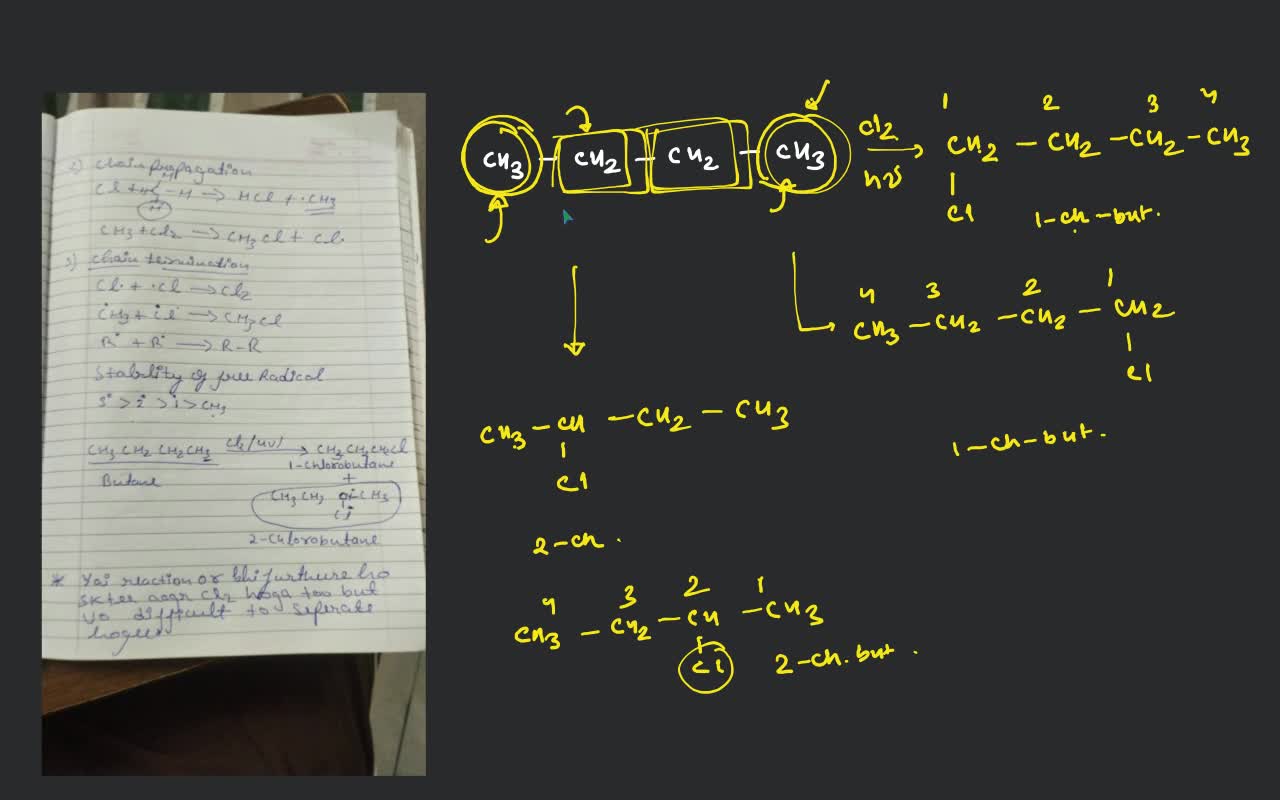 2) Chain propagation
H
Cl + H C - H → HCl + ·CH3
H
CH3 + Cl2 → CH3 Cl + Cl·
3) Chain termination
Cl· + ·Cl → Cl2
ĊH3 + Ċl → CH3Cl
R· + R· → R-R
Stability of free Radical
3° > 2° > 1° > CH3
CH3 CH2 CH2 CH3 Cl2/UV → CH3 CH2 CH2 CH2 Cl
1-chlorobutane
+
Butane
Cl
2-Chlorobutane
* Yai reaction or bhi furthure ho
sktee aagr Cl2 hoga too but
vo difficult to seperate
hogee
CH3 - CH2 - CH2 - CH3 Cl2 → hν
1 2 3 4
CH2 - CH2 - CH2 - CH3
Cl
1-ch-but.
4 3 2 1
CH3 - CH2 - CH2 - CH2
Cl
1-ch-but.
CH3 - CH - CH2 - CH3
Cl
2-ch.
4 3 2 1
CH3 - CH2 - CH - CH3
Cl 2-ch.but.